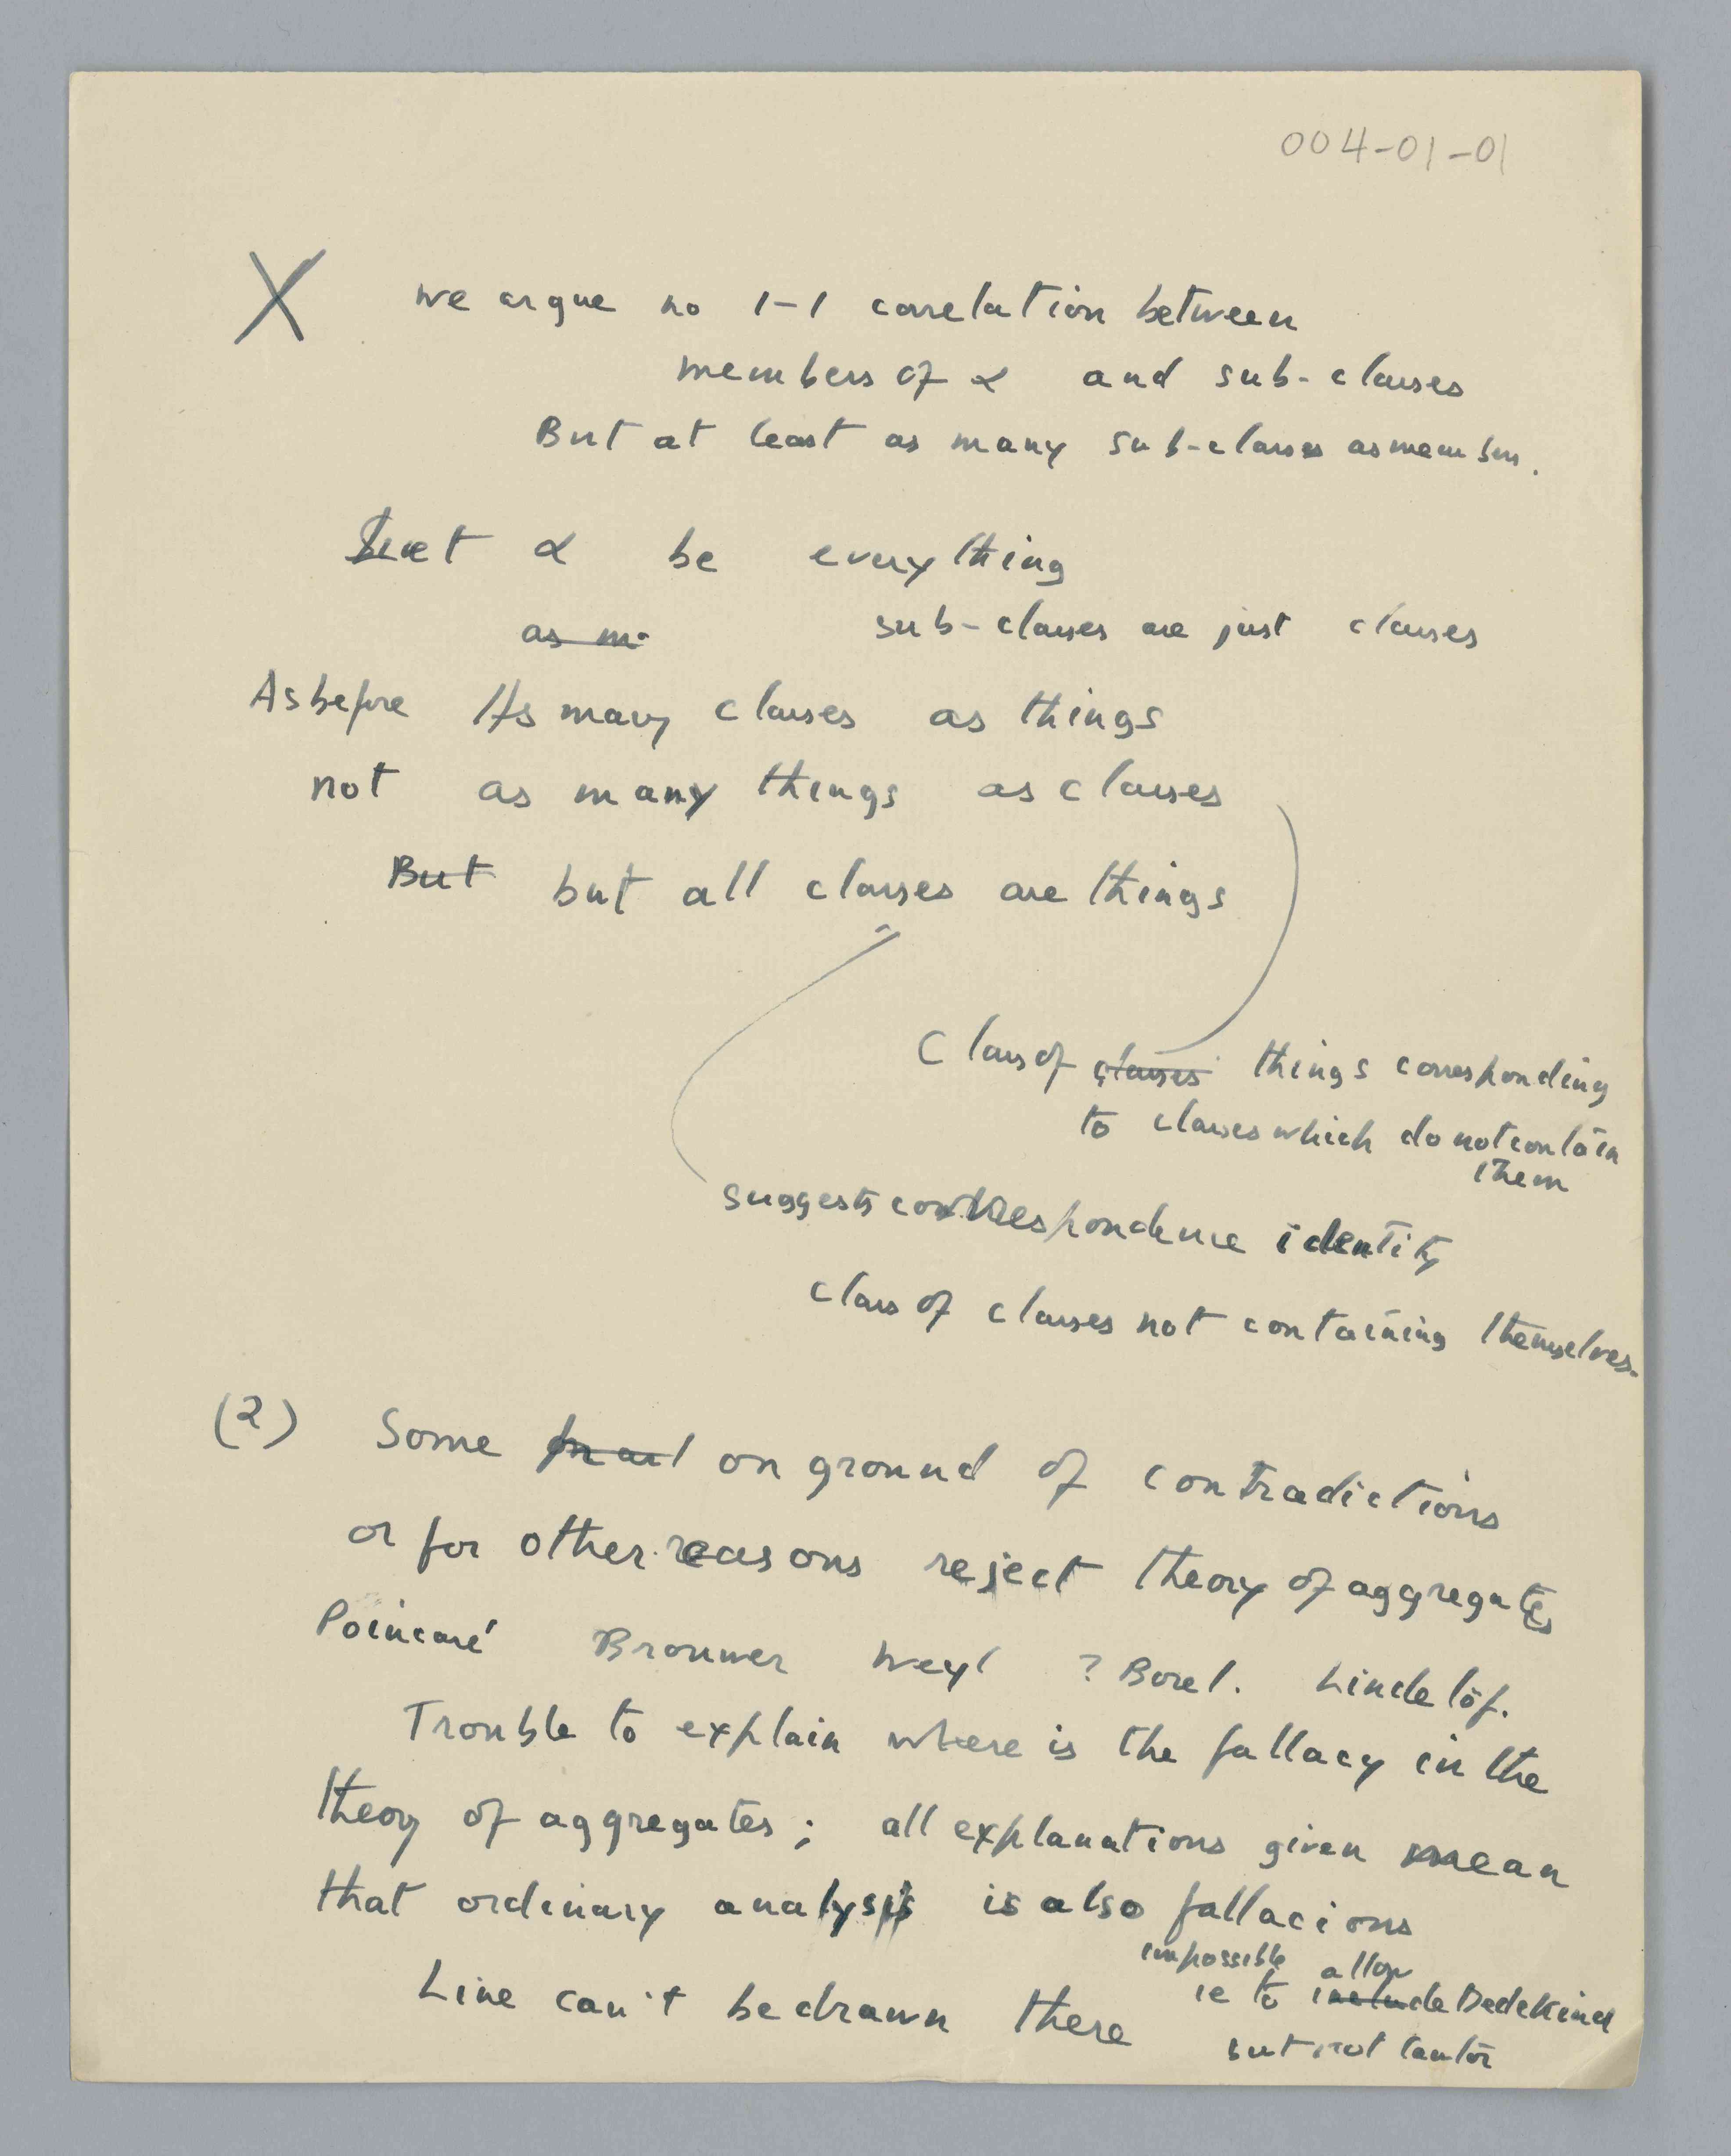 004-01-01
X we argue no 1-1 correlation between
members of α and sub-classes
But at least as many sub-classes as members.
Let α be everything
as m sub-classes are just classes
As before As many classes as things
not as many things as classes
But but all classes are things
Class of classes things corresponding
to classes which do not contain
them
suggests correspondence identity
class of classes not containing themselves.
(2) Some on ground of contradictions
or for other reasons reject theory of aggregates
Poincaré Brouwer Weyl ? Borel. Lindelöf.
Trouble to explain where is the fallacy in the
theory of aggregates; all explanations given mean
that ordinary analysis is also fallacious
impossible allow
Line can't be drawn there ie to include Dedekind
but not Cantor